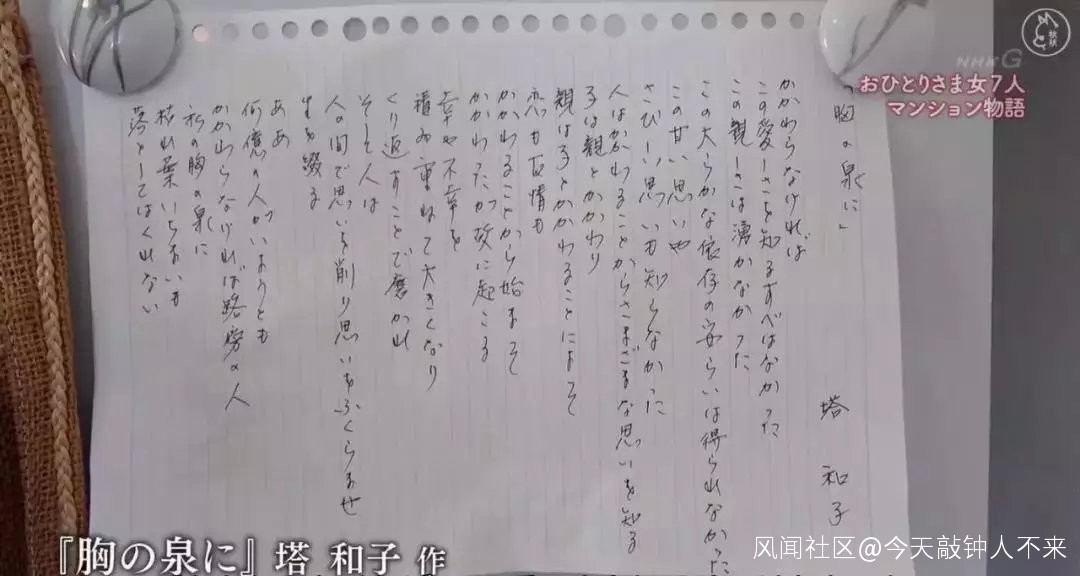 NHK G
おひとりさま女7人
マンション物語
「胸の泉に」
塔 和子
かかわらなければ
この愛しさを知るすべはなかった
この親しさは湧かなかった
この大らかな依存の安らいは得られなかった
この甘い思いや
さびしい思いも知らなかった
人はかかわることからさまざまな思いを知る
子は親とかかわり
親は子とかかわることによって
恋も友情も
かかわることから始まって
かかわったが故に起こる
幸や不幸を
積み重ねて大きくなり
くり返すことで磨かれ
そして人は
人の間で思いを削り思いをふくらませ
生を綴る
ああ
何億の人がいようとも
かかわらなければ路傍の人
私の胸の泉に
枯れ葉いちまいも
落としてはくれない
『胸の泉に』 塔 和子 作
风闻社区@今天敲钟人不来